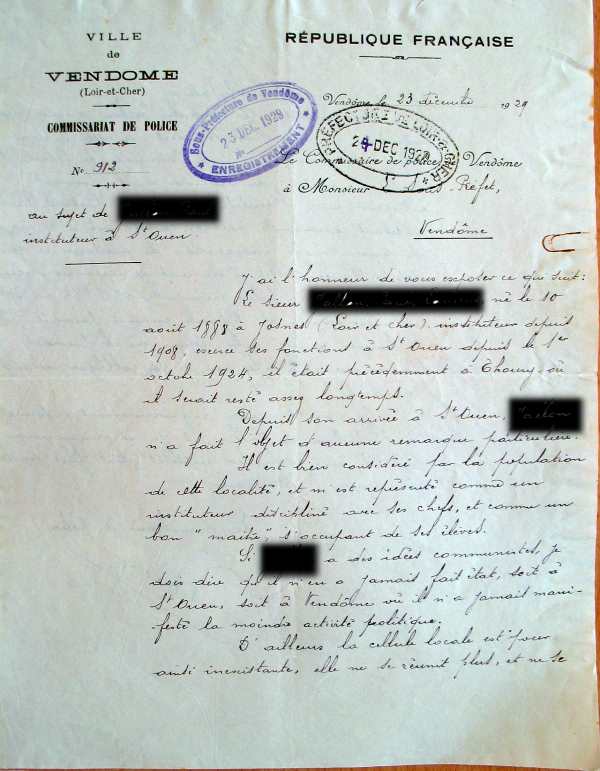 VILLE
de
VENDOME
(Loir-et-Cher)
COMMISSARIAT DE POLICE
N° 912
au sujet de
instituteur à St Ouen
RÉPUBLIQUE FRANÇAISE
Vendôme le 23 décembre 1929
Sous-Préfecture de Vendôme
23 DEC. 1929
ENREGISTREMENT
PRÉFECTURE DE LOIR-&-CHER
24 DEC 192
Le Commissaire de police de Vendôme
à Monsieur le Sous-Préfet,
Vendôme
J'ai l'honneur de vous exposer ce que suit:
Le sieur né le 10
août 1888 à Josnes (Loir et cher). instituteur depuis
1908, exerce ses fonctions à St Ouen depuis le 1er
octobre 1924, il était précédemment à Thoury, où
il serait resté assez longtemps.
Depuis son arrivée à St Ouen,
n'a fait l'objet d'aucune remarque particulière.
Il est bien considéré par la population
de cette localité, et m'est représenté comme un
instituteur discipliné avec ses chefs, et comme un
bon "maitre", s'occupant de ses élèves.
Si a des idées communistes, je
dois dire qu'il n'en a jamais fait état, soit à
St Ouen, soit à Vendôme où il n'a jamais mani-
festé la moindre activité politique.
D'ailleurs la cellule locale est pour
ainsi inexistante, elle ne se réunit plus, et ne se